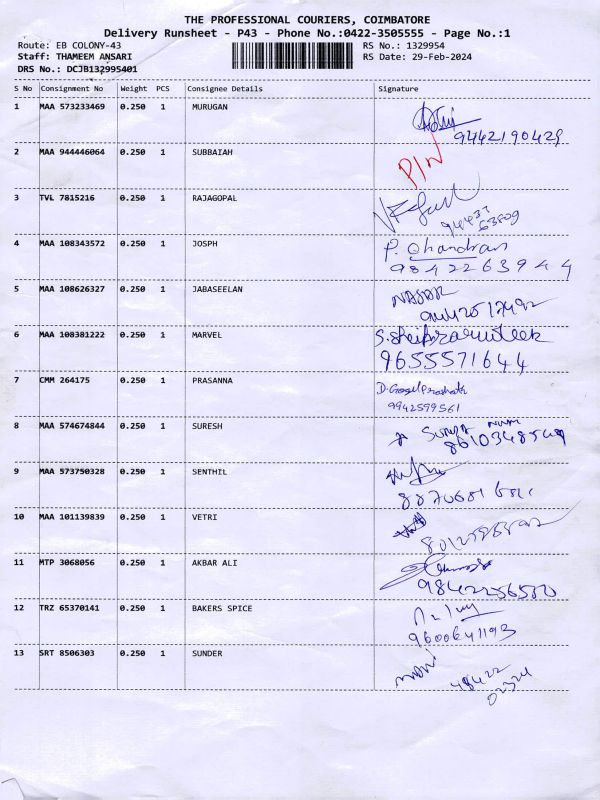 THE PROFESSIONAL COURIERS, COIMBATORE
Delivery Runsheet - P43 - Phone No.:0422-3505555 - Page No.:1
Route: EB COLONY-43 RS No.: 1329954
Staff: THAMEEM ANSARI RS Date: 29-Feb-2024
DRS No.: DCJB132995401
S No Consignment No Weight PCS Consignee Details Signature
1 MAA 573233469 0.250 1 MURUGAN
9442190429
2 MAA 944446064 0.250 1 SUBBAIAH
P/N
3 TVL 7815216 0.250 1 RAJAGOPAL
94437
63809
4 MAA 108343572 0.250 1 JOSPH P. Chandran
9842263944
5 MAA 108626327 0.250 1 JABASEELAN
6 MAA 108381222 0.250 1 MARVEL
9655571644
7 CMM 264175 0.250 1 PRASANNA
9942599561
8 MAA 574674844 0.250 1 SURESH
9 MAA 573750328 0.250 1 SENTHIL
10 MAA 101139839 0.250 1 VETRI
11 MTP 3068056 0.250 1 AKBAR ALI
9842256550
12 TRZ 65370141 0.250 1 BAKERS SPICE
9600641193
13 SRT 8506303 0.250 1 SUNDER